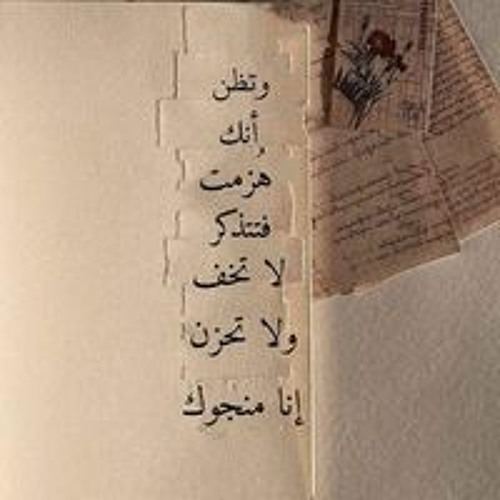 وتظن
أنك
هُزمت
فتتذكر
لا تخف
ولا تحزن
إنا منجوك